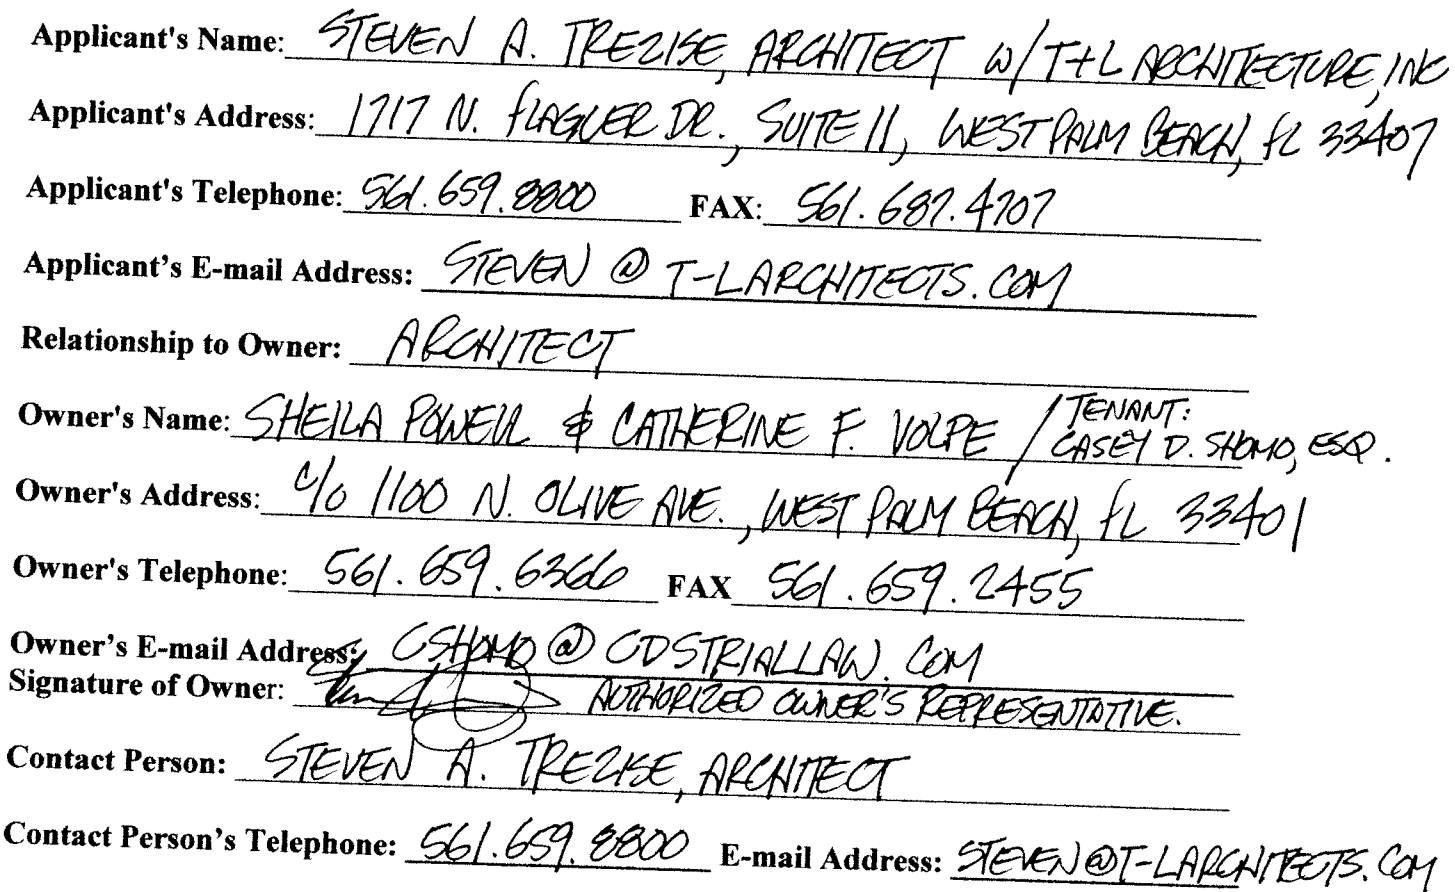 Applicant's Name: STEVEN A. TREZISE, ARCHITECT w/ T+L ARCHITECTURE, INC
Applicant's Address: 1717 N. FLAGLER DR., SUITE 11, WEST PALM BEACH, FL 33407
Applicant's Telephone: 561.659.8800 FAX: 561.687.4707
Applicant's E-mail Address: STEVEN @ T-LARCHITECTS.COM
Relationship to Owner: ARCHITECT
Owner's Name: SHEILA POWELL & CATHERINE F. VOLPE / TENANT: CASEY D. SHOMO, ESQ.
Owner's Address: c/o 1100 N. OLIVE AVE., WEST PALM BEACH, FL 33401
Owner's Telephone: 561.659.6366 FAX 561.659.2455
Owner's E-mail Address: CSHOMO @ CDSTRIALLAW.COM
Signature of Owner: AUTHORIZED OWNER'S REPRESENTATIVE.
Contact Person: STEVEN A. TREZISE, ARCHITECT
Contact Person's Telephone: 561.659.8800 E-mail Address: STEVEN@T-LARCHITECTS.COM